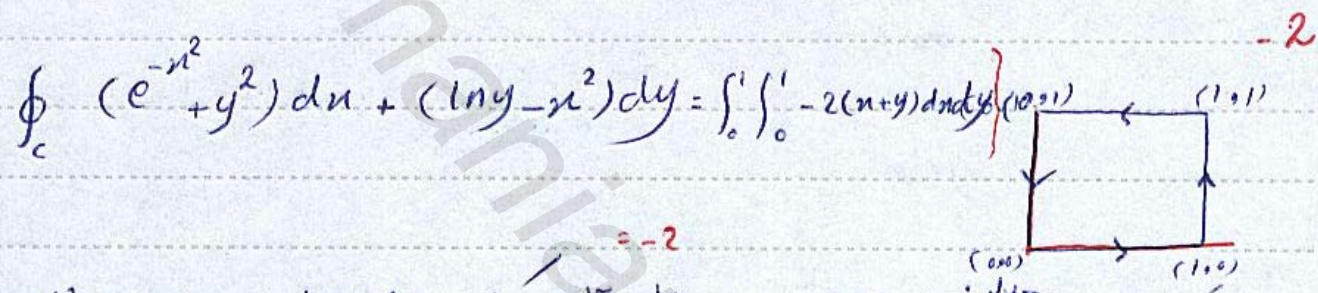 -2
∮_C (e^{-x²}+y²)dx + (lny-x²)dy = ∫₀¹∫₀¹ -2(x+y)dxdy
(0,1) (1,1)
= -2
(0,0) (1,0)